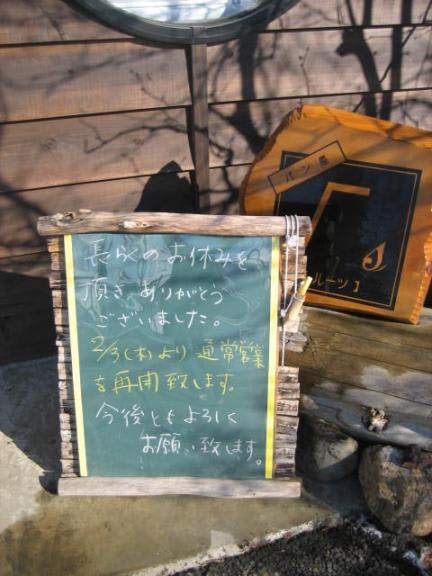 長らくのお休みを
頂きありがとう
ございました。
2/3(木)より通常営業
を再開致します。
今後ともよろしく
お願い致します。
パン屋
ルーツ】